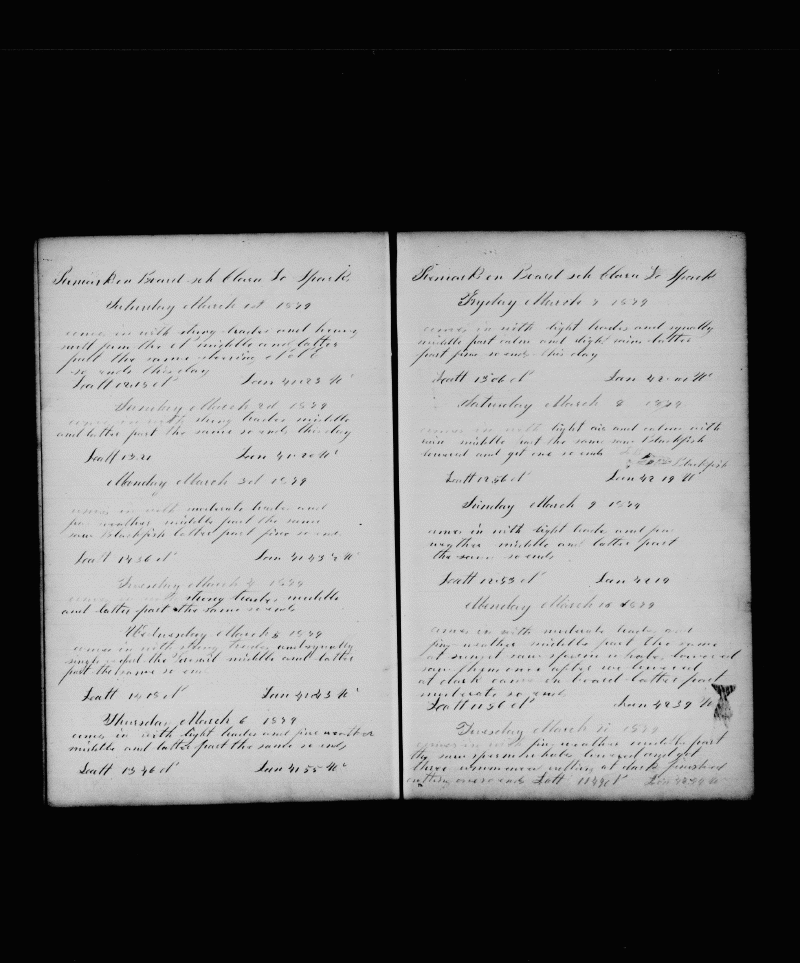 Remarks on Board sch Clara L Sparks
Saturday March 1st 1879
comes in with strong trades and heavy
swell from the middle and latter
part the same steering
so ends this day
Latt 12 15 N Lon 41 23 W
Sunday March 2d 1879
comes in with strong trades middle
and latter part the same so ends this day
Latt 13 21 Lon 41 20 W
Monday March 3d 1879
comes in with moderate trades and
fine weather middle part the same
saw blackfish latter part fine so ends
Latt 14 36 N Lon 41 43 W
Tuesday March 4 1879
comes in with strong trades middle
and latter part the same so ends
Wednesday March 5 1879
comes in with strong trades and squally
part the middle and latter
part the same so ends
Latt 14 18 N Lon 41 43 W
Thursday March 6 1879
comes in with light trades and fine weather
middle and latter part the same so ends
Latt 13 46 N Lon 41 55 W
Remarks on Board sch Clara L Sparks
Fryday March 7 1879
comes in with light trades and squally
middle part calm and light airs latter
part fine so ends this day
Latt 13 06 N Lon 42 01 W
Saturday March 8 1879
comes in with light air and calms with
rain middle part the same saw Blackfish
lowered and got one so ends
Blackfish
Latt 12 56 N Lon 42 19 W
Sunday March 9 1879
comes in with light trades and fine
weather middle and latter part
the same so ends
Latt 12 53 N Lon 42 19
Monday March 10 1879
comes in with moderate trades and
fine weather middle part the same
at sunset saw sperm whales lowered
saw them once after we lowered
at dark came on board latter part
moderate so ends
Latt 11 56 N Lon 42 39 W
Tuesday March 11 1879
comes in with fine weather middle part
the saw sperm whales lowered and got
three commenced cutting at dark finished
cutting so ends Latt 11 44 N Lon 42 42 W